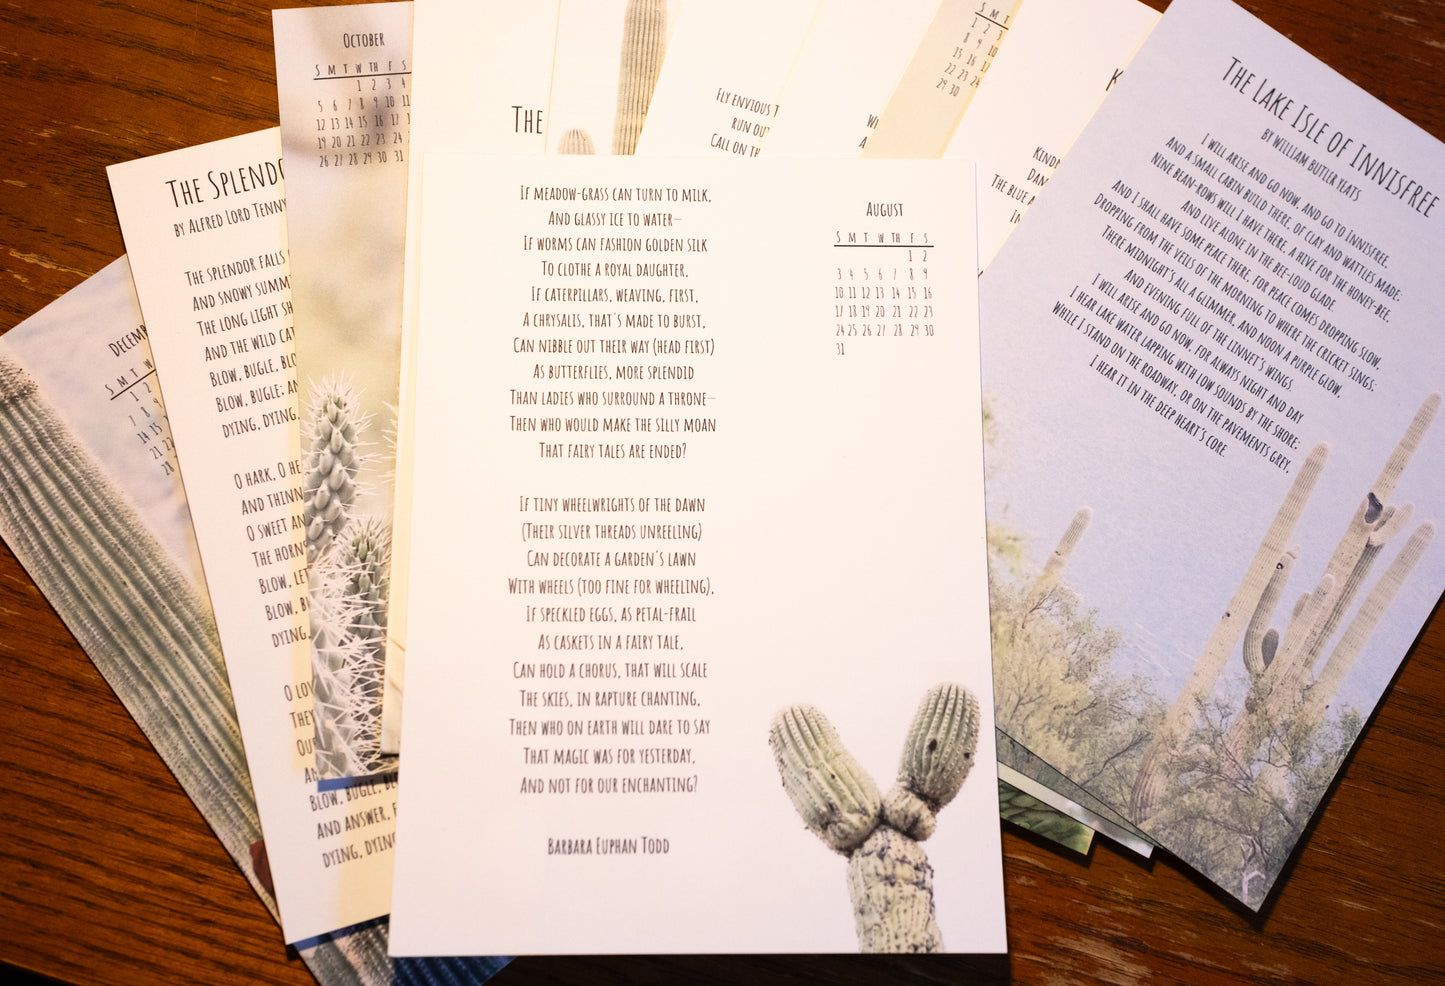 DECEMB
S M T W
1 2
7 8 9
14 15
21 22
28
THE SPLENDO
BY ALFRED LORD TENNY
THE SPLENDOR FALLS
AND SNOWY SUMMI
THE LONG LIGHT SH
AND THE WILD CAT
BLOW, BUGLE, BLO
BLOW, BUGLE; AN
DYING, DYING,
O HARK, O HE
AND THINN
O SWEET AN
THE HORNS
BLOW, LET
BLOW, B
DYING,
O LOV
THEY
OUR
AN
BLOW, BUGLE, BL
AND ANSWER, E
DYING, DYING
OCTOBER
S M T W TH F S
1 2 3 4
5 6 7 8 9 10 11
12 13 14 15 16 17 18
19 20 21 22 23 24
26 27 28 29 30 31
THE
FLY ENVIOUS T
RUN OU
CALL ON TH
S M T
1 2 3
8 9 10
15 16 17
22 23 24
29 30
KIND
DAN
THE BLUE A
IN
IF MEADOW-GRASS CAN TURN TO MILK,
AND GLASSY ICE TO WATER—
IF WORMS CAN FASHION GOLDEN SILK
TO CLOTHE A ROYAL DAUGHTER,
IF CATERPILLARS, WEAVING, FIRST,
A CHRYSALIS, THAT'S MADE TO BURST,
CAN NIBBLE OUT THEIR WAY (HEAD FIRST)
AS BUTTERFLIES, MORE SPLENDID
THAN LADIES WHO SURROUND A THRONE—
THEN WHO WOULD MAKE THE SILLY MOAN
THAT FAIRY TALES ARE ENDED?
IF TINY WHEELWRIGHTS OF THE DAWN
(THEIR SILVER THREADS UNREELING)
CAN DECORATE A GARDEN'S LAWN
WITH WHEELS (TOO FINE FOR WHEELING),
IF SPECKLED EGGS, AS PETAL-FRAIL
AS CASKETS IN A FAIRY TALE,
CAN HOLD A CHORUS, THAT WILL SCALE
THE SKIES, IN RAPTURE CHANTING,
THEN WHO ON EARTH WILL DARE TO SAY
THAT MAGIC WAS FOR YESTERDAY,
AND NOT FOR OUR ENCHANTING?
BARBARA EUPHAN TODD
AUGUST
S M T W TH F S
1 2
3 4 5 6 7 8 9
10 11 12 13 14 15 16
17 18 19 20 21 22 23
24 25 26 27 28 29 30
31
THE LAKE ISLE OF INNISFREE
BY WILLIAM BUTLER YEATS
I WILL ARISE AND GO NOW, AND GO TO INNISFREE,
AND A SMALL CABIN BUILD THERE, OF CLAY AND WATTLES MADE;
NINE BEAN-ROWS WILL I HAVE THERE, A HIVE FOR THE HONEY-BEE,
AND LIVE ALONE IN THE BEE-LOUD GLADE.
AND I SHALL HAVE SOME PEACE THERE, FOR PEACE COMES DROPPING SLOW,
DROPPING FROM THE VEILS OF THE MORNING TO WHERE THE CRICKET SINGS;
THERE MIDNIGHT'S ALL A GLIMMER, AND NOON A PURPLE GLOW,
AND EVENING FULL OF THE LINNET'S WINGS.
I WILL ARISE AND GO NOW, FOR ALWAYS NIGHT AND DAY
I HEAR LAKE WATER LAPPING WITH LOW SOUNDS BY THE SHORE;
WHILE I STAND ON THE ROADWAY, OR ON THE PAVEMENTS GREY,
I HEAR IT IN THE DEEP HEART'S CORE.